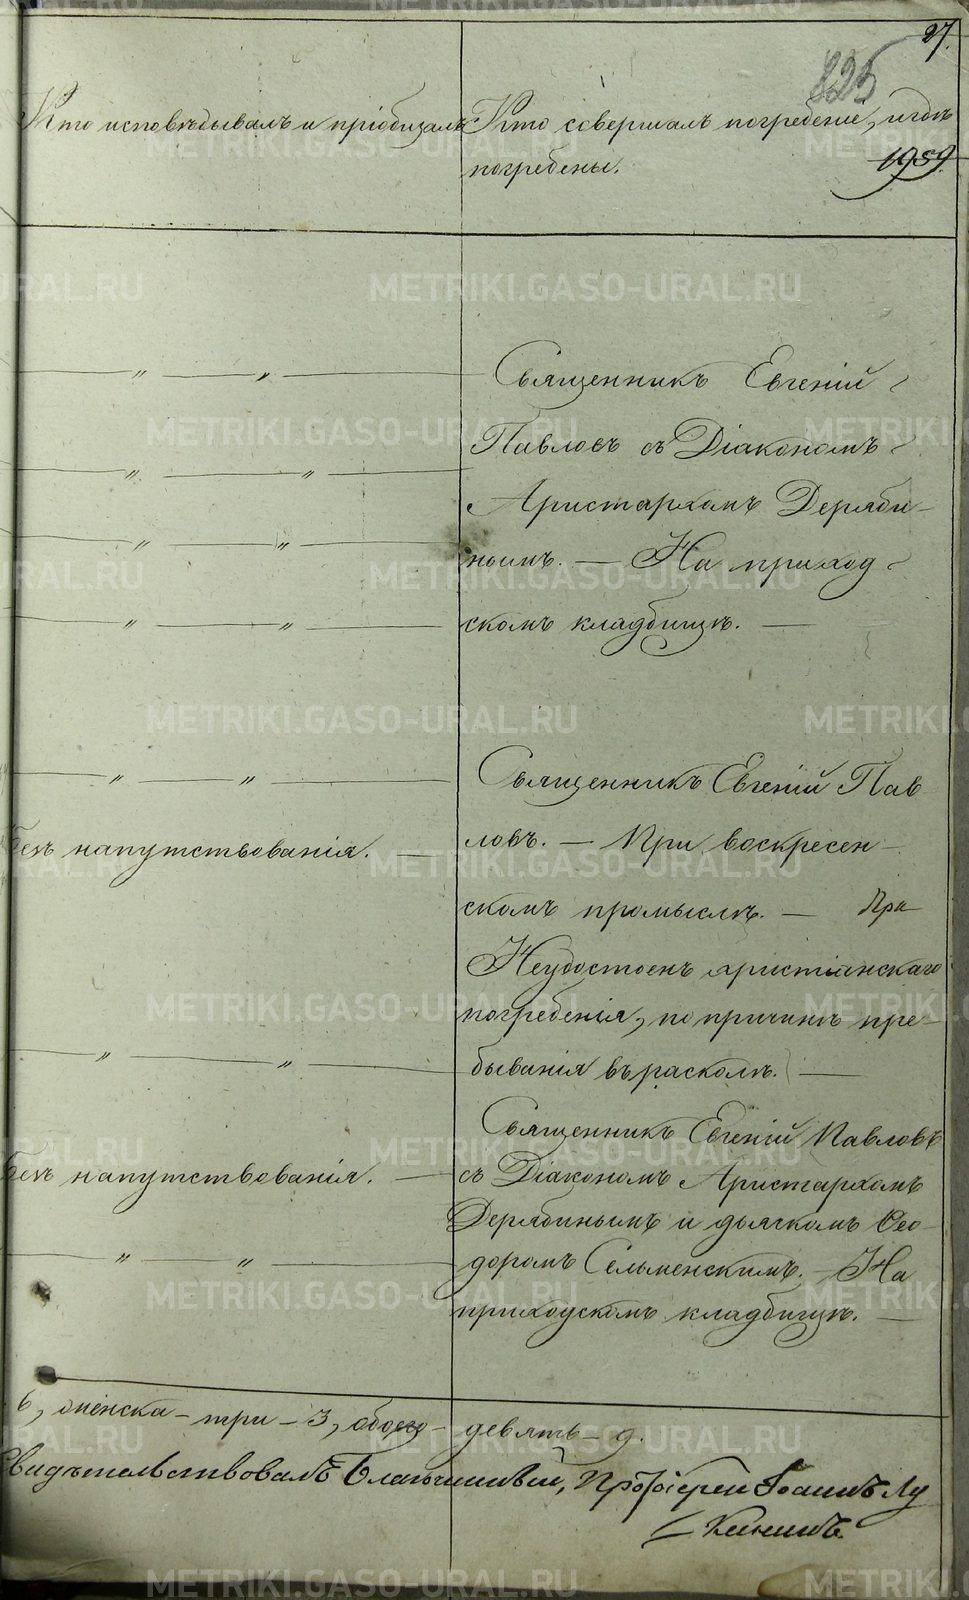 27.
825
Кто исповѣдывалъ и пріобщалъ
Кто совершалъ погребеніе, и гдѣ
погребены.
1989.
Священникъ Евгеній
Павловъ съ Діакономъ
Аристархомъ Деряби-
нымъ. — На приход-
скомъ кладбищѣ. —
Священникъ Евгеній Пав
безъ напутствованія. —
ловъ. — При воскресен-
скомъ промыслѣ. — При
Неудостоенъ христіанскаго
погребенія, по причинѣ пре-
быванія въ расколѣ. —
Священникъ Евгеній Павловъ
безъ напутствованія. —
съ Діакономъ Аристархомъ
Дерябинымъ и дьячкомъ Ѳео-
доромъ Сельменскимъ. — На
приходскомъ кладбищѣ. —
6, женска – три – 3, обоего – девять – 9.
Свидѣтельствовалъ Благочинный, Протоіерей Іоаннъ Лу
кининъ
METRIKI.GASO-URAL.RU